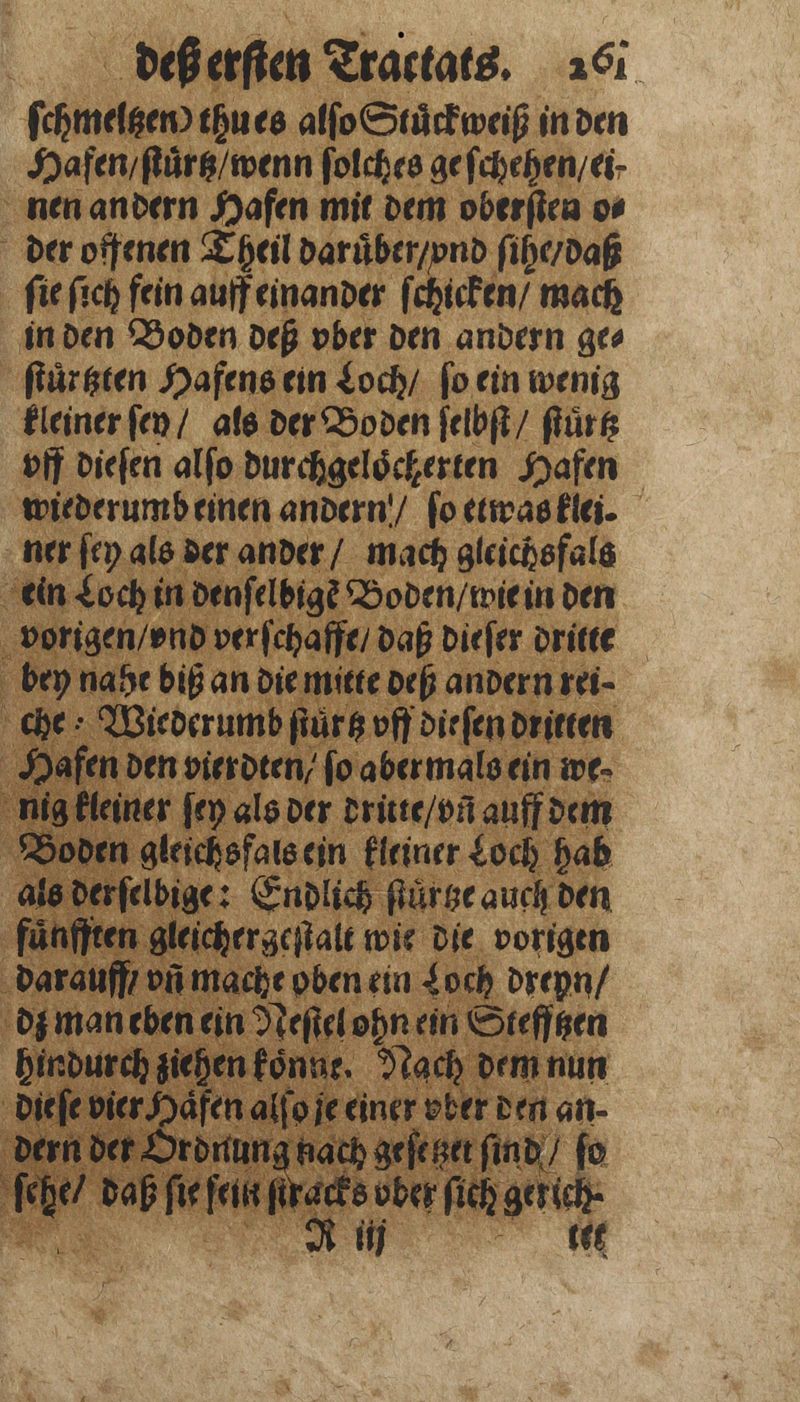 deß ersten Tractats. 261
schmeltzen) thu es also Stückweiß in den
Hafen/ stürtz/ wenn solches geschehen/ ei-
nen andern Hafen mit dem obersten o-
der offenen Theil darüber/ vnd sihe/ daß
sie sich fein auff einander schicken/ mach
in den Boden deß vber den andern ge-
stürtzten Hafens ein Loch/ so ein wenig
kleiner sey/ als der Boden selbst/ stürtz
vff diesen also durchgelöcherten Hafen
wiederumb einen andern/ so etwas klei-
ner sey als der ander/ mach gleichsfals
ein Loch in denselbigẽ Boden/ wie in den
vorigen/ vnd verschaffe/ daß dieser dritte
bey nahe biß an die mitte deß andern rei-
che: Wiederumb stürtz vff diesen dritten
Hafen den vierdten/ so abermals ein we-
nig kleiner sey als der dritte/ vñ auff dem
Boden gleichsfals ein kleiner Loch hab
als derselbige: Endlich stürtze auch den
fünfften gleichergestalt wie die vorigen
darauff/ vñ mache oben ein Loch dreyn/
dz man eben ein Nestel ohn ein Stefftzen
hindurch ziehen könne. Nach dem nun
diese vier Häfen also je einer vber den an-
dern der Ordnung nach gesetzet sind/ so
sehe/ daß sie fein stracks vber sich gerich-
R iij tet